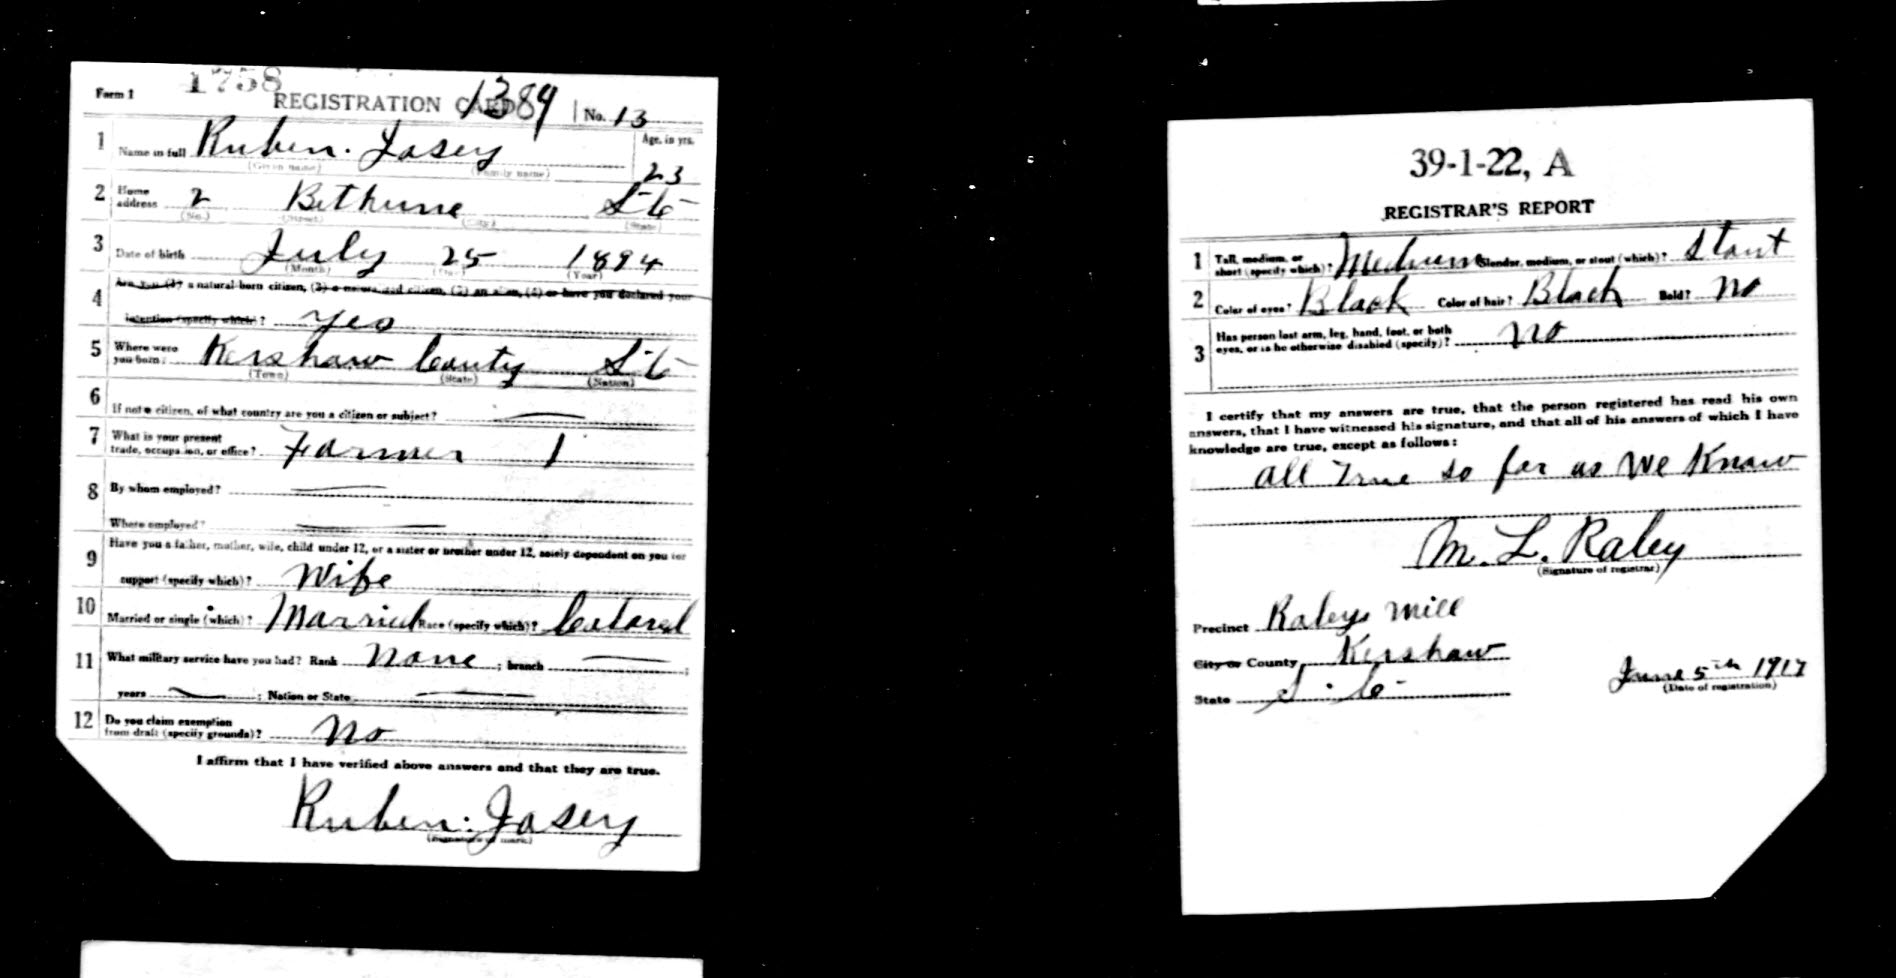 Form 1 1758 REGISTRATION CARD 1389 No. 13
1 Name in full Ruben. Jasey Age, in yrs.
(Given name) (Family name) 23
2 Home address 2 Bethune S-C-
(No.) (Street) (City) (State)
3 Date of birth July 25 1894
(Month) (Day) (Year)
4 Are you (1) a natural-born citizen, (2) a naturalized citizen, (3) an alien, (4) or have you declared your
intention (specify which)? Yes
5 Where were you born? Kershaw County S-C-
(Town) (State) (Nation)
6 If not a citizen, of what country are you a citizen or subject?
7 What is your present trade, occupation, or office? Farmer 1
8 By whom employed?
Where employed?
9 Have you a father, mother, wife, child under 12, or a sister or brother under 12, solely dependent on you for
support (specify which)? Wife
10 Married or single (which)? Married Race (specify which)? Colored
11 What military service have you had? Rank None ; branch ;
years ; Nation or State
12 Do you claim exemption from draft (specify grounds)? No
I affirm that I have verified above answers and that they are true.
Ruben. Jasey
(Signature or mark)
39-1-22, A
REGISTRAR'S REPORT
1 Tall, medium, or short (specify which)? Medium Slender, medium, or stout (which)? Stout
2 Color of eyes? Black Color of hair? Black Bald? No
3 Has person lost arm, leg, hand, foot, or both eyes, or is he otherwise disabled (specify)? No
I certify that my answers are true, that the person registered has read his own
answers, that I have witnessed his signature, and that all of his answers of which I have
knowledge are true, except as follows:
All True so far as We Know
M. L. Raley
(Signature of registrar)
Precinct Raleys Mill
City or County Kershaw
State S. C- June 5th 1917
(Date of registration)